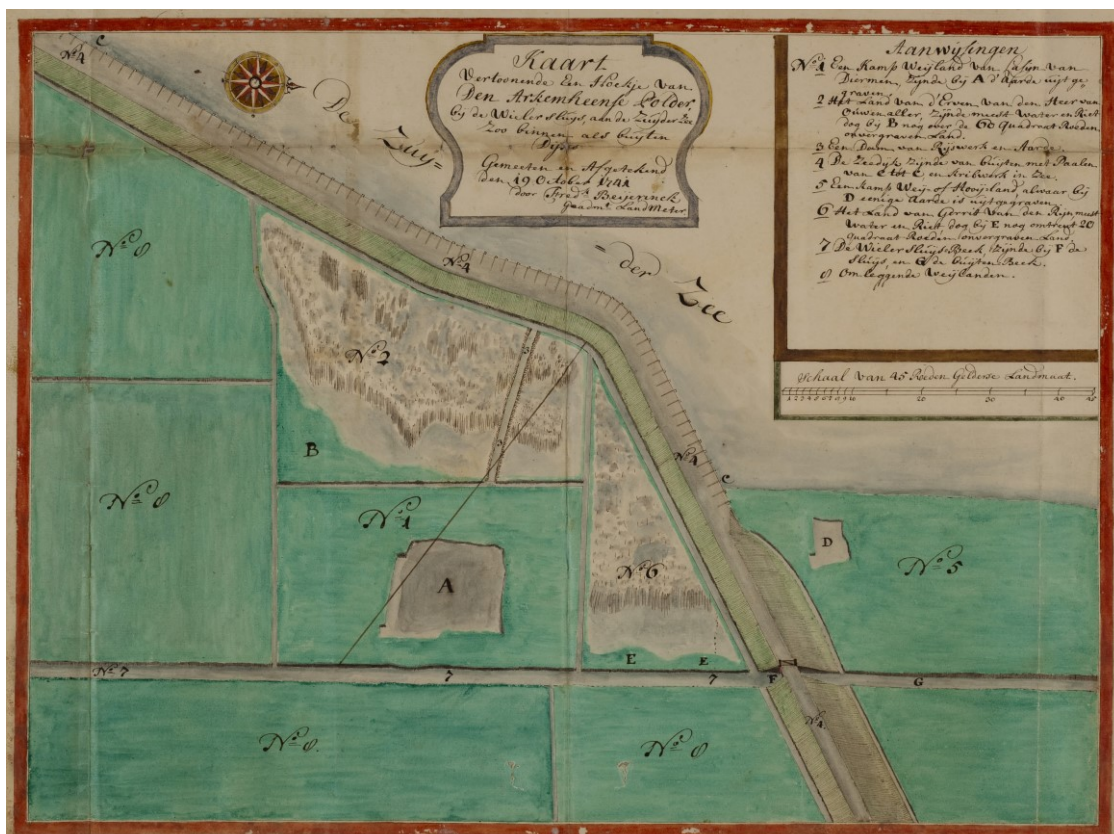 Kaart
Vertoonende Een Hoekje van
Den Arkemheense Polder,
bij de Wieler sluijs, aan de Zuyder Zee
Zoo binnen als buyten
Dijks
Gemeeten en Afgetekend
den 19 October 1741
door Fred.k Beijerinck
Geadm.t LandMeter
Aanwijsingen
No. 1 Een Kamp Weijland van
Diermen, Zijnde bij A d'Aarde uijt ge-
graven
2 Het Land van d'Erven van den Heer van
Ouwen aller, Zijnde meest Water en Riet
dog bij B nog over de 60 Quadraat Roeden
onvergraven Land.
3 Een Dam van Rijswerk en Aarde.
4 De Zeedijk Zijnde van buyten met Paalen
van C tot C en Krilwerk in Zee.
5 Een kamp Weij- of Hooij-land, alwaar bij
D eenige Aarde is uijtgegraven
6 Het Land van Gerrit Van den Rijn, meest
Water en Riet dog bij E nog omtrent 20
quadraat Roeden onvergraven Land
7 De Wieler Sluijs-Beek, Zijnde bij F de
Sluijs, en G de buijten Beek.
8 Om leggende Weijlanden.
Schaal van 45 Roeden Gelderse Landmaat.
1 2 3 4 5 6 7 8 9 10 20 30 40 45
De Zuy=
=der Zee
No. 4
C
No. 8
No. 4
No. 2
3
B
No. 8
No. 1
A
No. 4
C
D
No. 5
No. 6
E
E
No. 7
7
7
F
G
No. 8
No. 8
No. 4